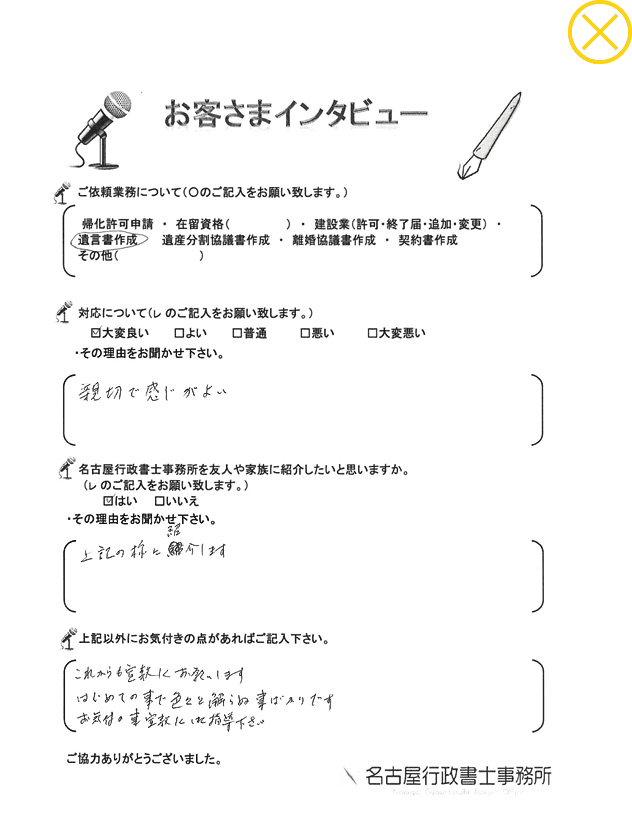 お客さまインタビュー
ご依頼業務について(〇のご記入をお願い致します。)
帰化許可申請 ・ 在留資格( ) ・ 建設業(許可・終了届・追加・変更) ・
遺言書作成 遺産分割協議書作成 ・ 離婚協議書作成 ・ 契約書作成
その他( )
対応について(レ のご記入をお願い致します。)
☑大変良い □よい □普通 □悪い □大変悪い
・その理由をお聞かせ下さい。
親切で感じがよい
名古屋行政書士事務所を友人や家族に紹介したいと思いますか。
(レ のご記入をお願い致します。)
☑はい □いいえ
・その理由をお聞かせ下さい。
上記の様に紹介します
上記以外にお気付きの点があればご記入下さい。
これからも宜敷くお願いします
はじめての事で色々と解らぬ事ばかりです
お気付の事宜敷く 指導下さい
ご協力ありがとうございました。
名古屋行政書士事務所